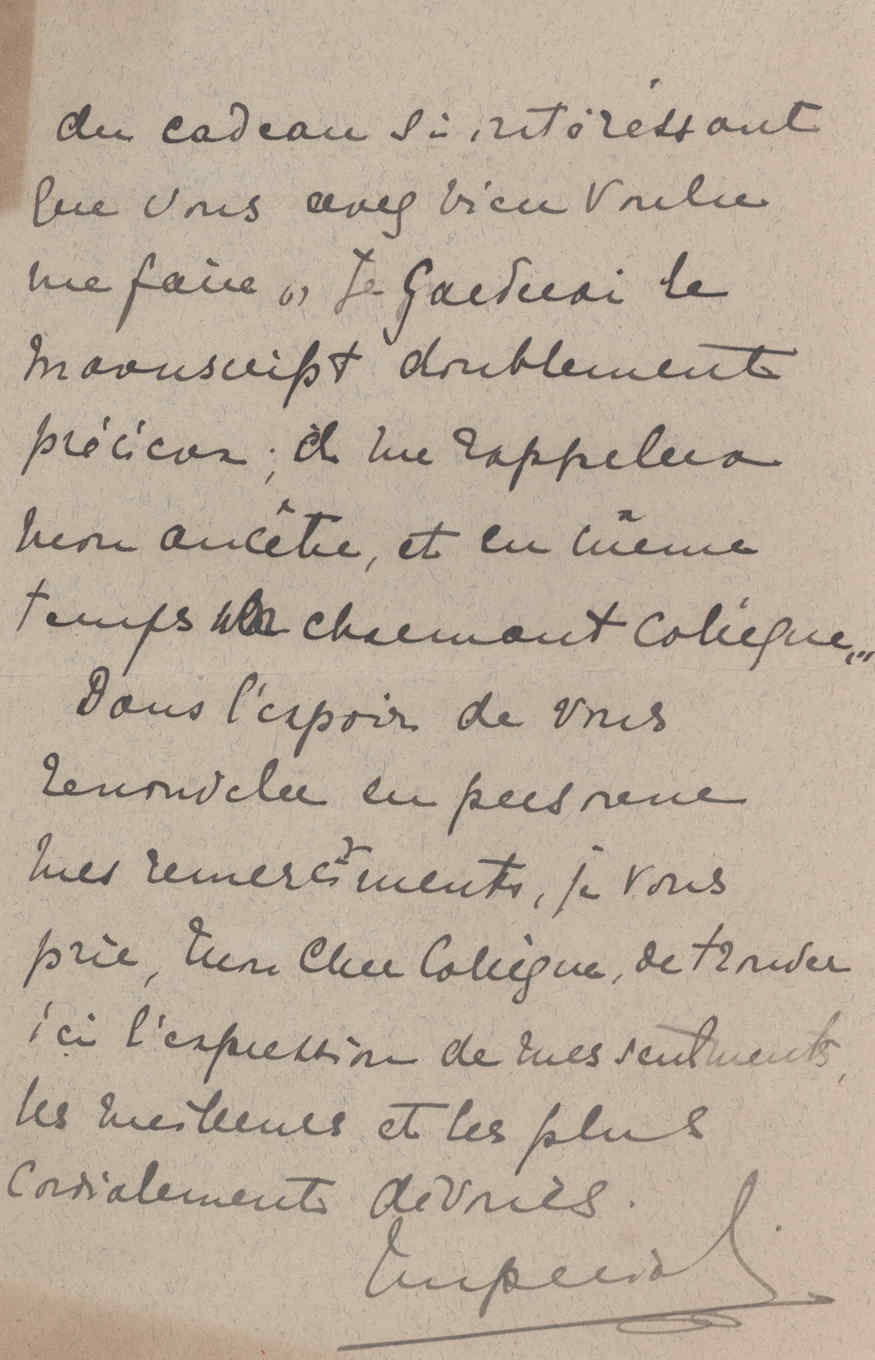 du cadeau si intéréssant
que vous avez bien voulu
me faire ,, Je garderai le
manuscript doublement
précieux ; il me rappelera
mon ancêtre, et en même
temps un charmant collègue,,,
Dans l'espoir de vous
renouveler en personne
mes remercîments, je vous
prie, mon cher Collègue, de trouver
ici l'expression de mes sentiments,
les meilleurs et les plus
cordialements dévoués.
Imperiali